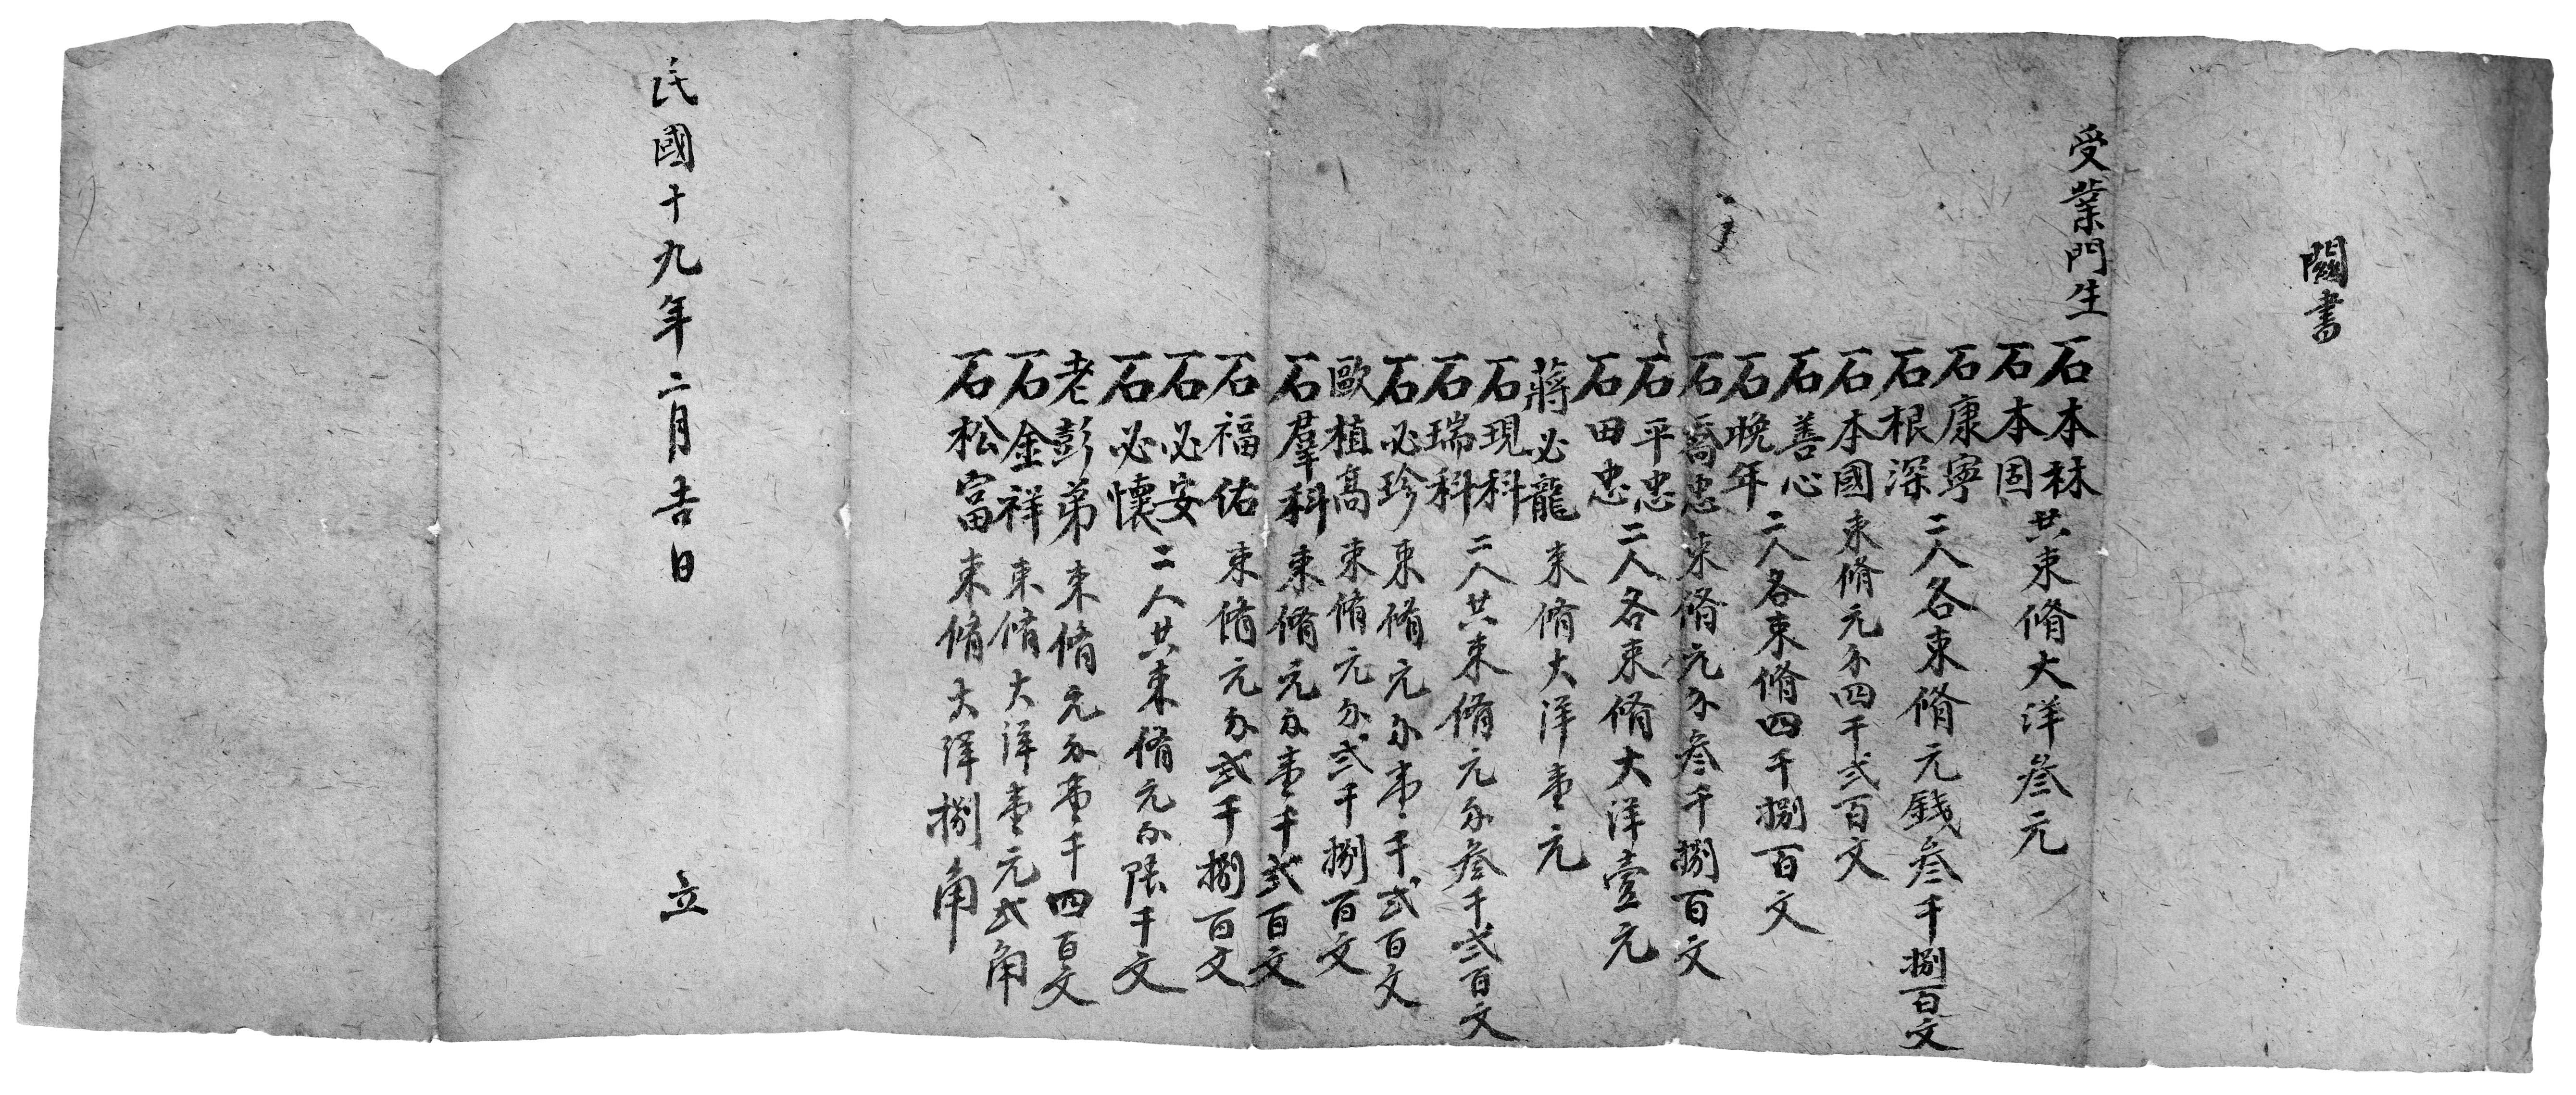 關書
受業門生
石本林
石本固
共束脩大洋叁元
石康寧
石根深
二人各束脩元錢叁千捌百文
石本國 束脩元尒四千弍百文
石善心
石晚年
二人各束脩四千捌百文
石喬忠 束脩元尒叁千捌百文
石平忠
石田忠
二人各束脩大洋壹元
蔣必龍 束脩大洋壹元
石現科
石瑞科
二人共束脩元尒叁千弍百文
石必珍 束脩元尒壹千弍百文
歐植高 束脩元尒弍千捌百文
石羣科 束脩元尒壹千弍百文
石福佑 束脩元尒弍千捌百文
石必安
石必懷
二人共束脩元尒千文
老彭弟 束脩元尒壹千四百文
石金祥 束脩大洋壹元弍角
石松富 束脩大洋捌角
民國十九年二月吉日 立